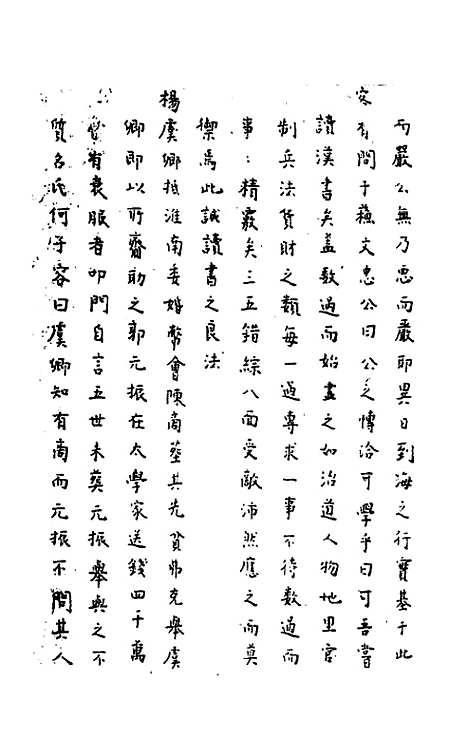 而嚴公無乃忠而嚴即異日到海之行實基于此
客有問于蘇文忠公曰公之博洽可學乎曰可吾嘗
讀漢書矣蓋數過而始盡之如治道人物地里官
制兵法貨財之類每一過專求一事不待數過而
事〻精覈矣三五錯綜八面受敵沛然應之而莫
禦焉此誠讀書之良法
楊虞卿抵淮南委婚幣會陳商葬其先貧弗克舉虞
卿即以所齎助之郭元振在太學家送錢四十萬
會有衰服者叩門自言五世未葬元振舉與之不
質名氏何子容曰虞卿知有商而元振不問其人